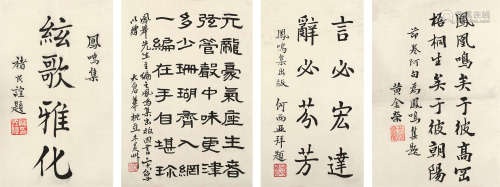 鳳凰鳴矣于彼高岡
梧桐生矣于彼朝陽
節卷阿句為鳳鳴集題
黃金榮
言必宏達
辭必芬芳
鳳鳴集出版 何西亞拜題
元龍豪氣座生春
弦管聲中味更津
多少珊瑚齊入網
一編在手自堪珍
先生主編鳳鳴集出版因書
以贈
鳳鳴集
絃歌雅化
褚民誼題